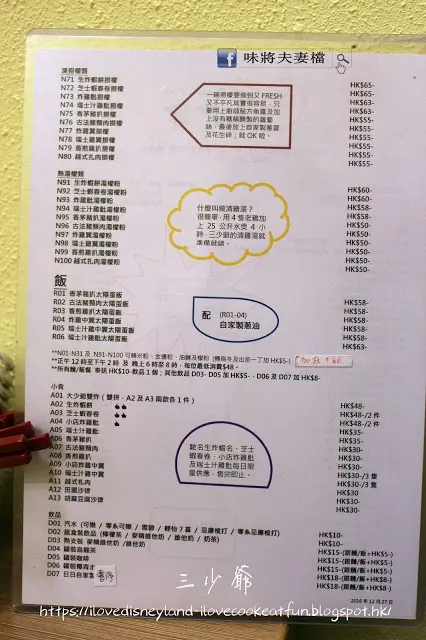 味將夫妻檔
凍撈檬類
N71 生炸蝦餅撈檬 HK$65-
N72 芝士蝦春卷撈檬 HK$65-
N73 炸雞髀撈檬 HK$63-
N74 瑞士汁雞髀撈檬 HK$63-
N75 香茅豬扒撈檬 HK$55-
N76 古法豬頸肉撈檬 HK$55-
N77 炸雞翼撈檬 HK$55-
N78 瑞士雞翼撈檬 HK$55-
N79 香煎雞扒撈檬 HK$55-
N80 越式扎肉撈檬 HK$55-
一碗撈檬要做到又FRESH
又不平凡其實很容易，只
要用上廚師秘方魚露及加
上沒有糖精醃製的蘿蔔
絲，最後放上自家製蔥蓉
及花生碎；就OK 啦。
熱湯檬類
N91 生炸蝦餅湯檬粉 HK$60-
N92 芝士蝦春卷湯檬粉 HK$60-
N93 炸雞髀湯檬粉 HK$58-
N94 瑞士汁雞髀湯檬粉 HK$58-
N95 香茅豬扒湯檬粉 HK$50-
N96 古法豬頸肉湯檬粉 HK$50-
N97 炸雞翼湯檬粉 HK$50-
N98 瑞士雞翼湯檬粉 HK$50-
N99 香煎雞扒湯檬粉 HK$50-
N100 越式扎肉湯檬粉 HK$50-
什麼叫做清雞湯？
很簡單，用 4 隻老雞加
上 25 公升水煲 4 小
時，三少爺的清雞湯就
準備就緒。
飯
R01 香茅豬扒太陽蛋飯 HK$58-
R02 古法豬頸肉太陽蛋飯 HK$58-
R03 香煎雞扒太陽蛋飯 HK$58-
R04 炸雞中翼太陽蛋飯 HK$58-
R05 瑞士汁雞中翼太陽蛋飯 HK$58-
R06 瑞士汁雞髀太陽蛋飯 HK$63-
配 (R01-04)
自家製蔥油
**N01-N31 及 N91-N100 可轉米粉、金邊粉、油麵及檬粉 (轉烏冬及出前一丁加 HK$5-)
**正午 12 時至下午 2 時 及 晚上 6 時至 8 時，每位最低消費$48。
**所有麵/飯餐 奉送 HK$10-飲品 1 個；其他飲品 D03- D05 加 HK$5-、D06 及 D07 加 HK$8-
小食
A01 大少爺雙炸 ( 雙拼，A2 及 A3 兩款各 1 件 )
A02 生炸蝦餅 HK$48-
A03 芝士蝦春卷 HK$48-/2 件
A04 小店炸雞髀 HK$48-/2 件
A05 瑞士汁雞髀 HK$35-
A06 香茅豬扒 HK$35-
A07 古法豬頸肉 HK$30-
A08 香煎雞扒 HK$30-
A09 小店炸雞中翼 HK$30-
A10 瑞士汁雞中翼 HK$30-/3 隻
A11 越式扎肉 HK$30-/3 隻
A12 田園沙律 HK$30
A13 胡麻豆腐沙律 HK$30-
馳名生炸蝦名、芝士
蝦春卷、小店炸雞髀
及瑞士汁雞髀每日限
量供應，售完即止。
飲品
D01 汽水 (可樂 / 零系可樂 / 雪碧 / 輕怡 7 喜 / 忌廉梳打 / 零系忌廉梳打) HK$10-
D02 紙盒裝飲品 (檸檬茶 / 麥精維他奶 / 維他奶 / 奶茶) HK$10-
D03 熱支裝 麥精維他奶 /維他奶 HK$15-(跟麵/飯+HK$5-)
D04 罐裝烏龍茶 HK$15-(跟麵/飯+HK$5-)
D05 罐裝咖啡 HK$15-(跟麵/飯+HK$5-)
D06 罐裝椰青水 HK$18-(跟麵/飯+HK$8-)
D07 日日自家製 HK$18-(跟麵/飯+HK$8-)
2016 年 12 月 27 日
三少爺
https://ilovedisneyland-ilovecookeatfun.blogspot.hk/